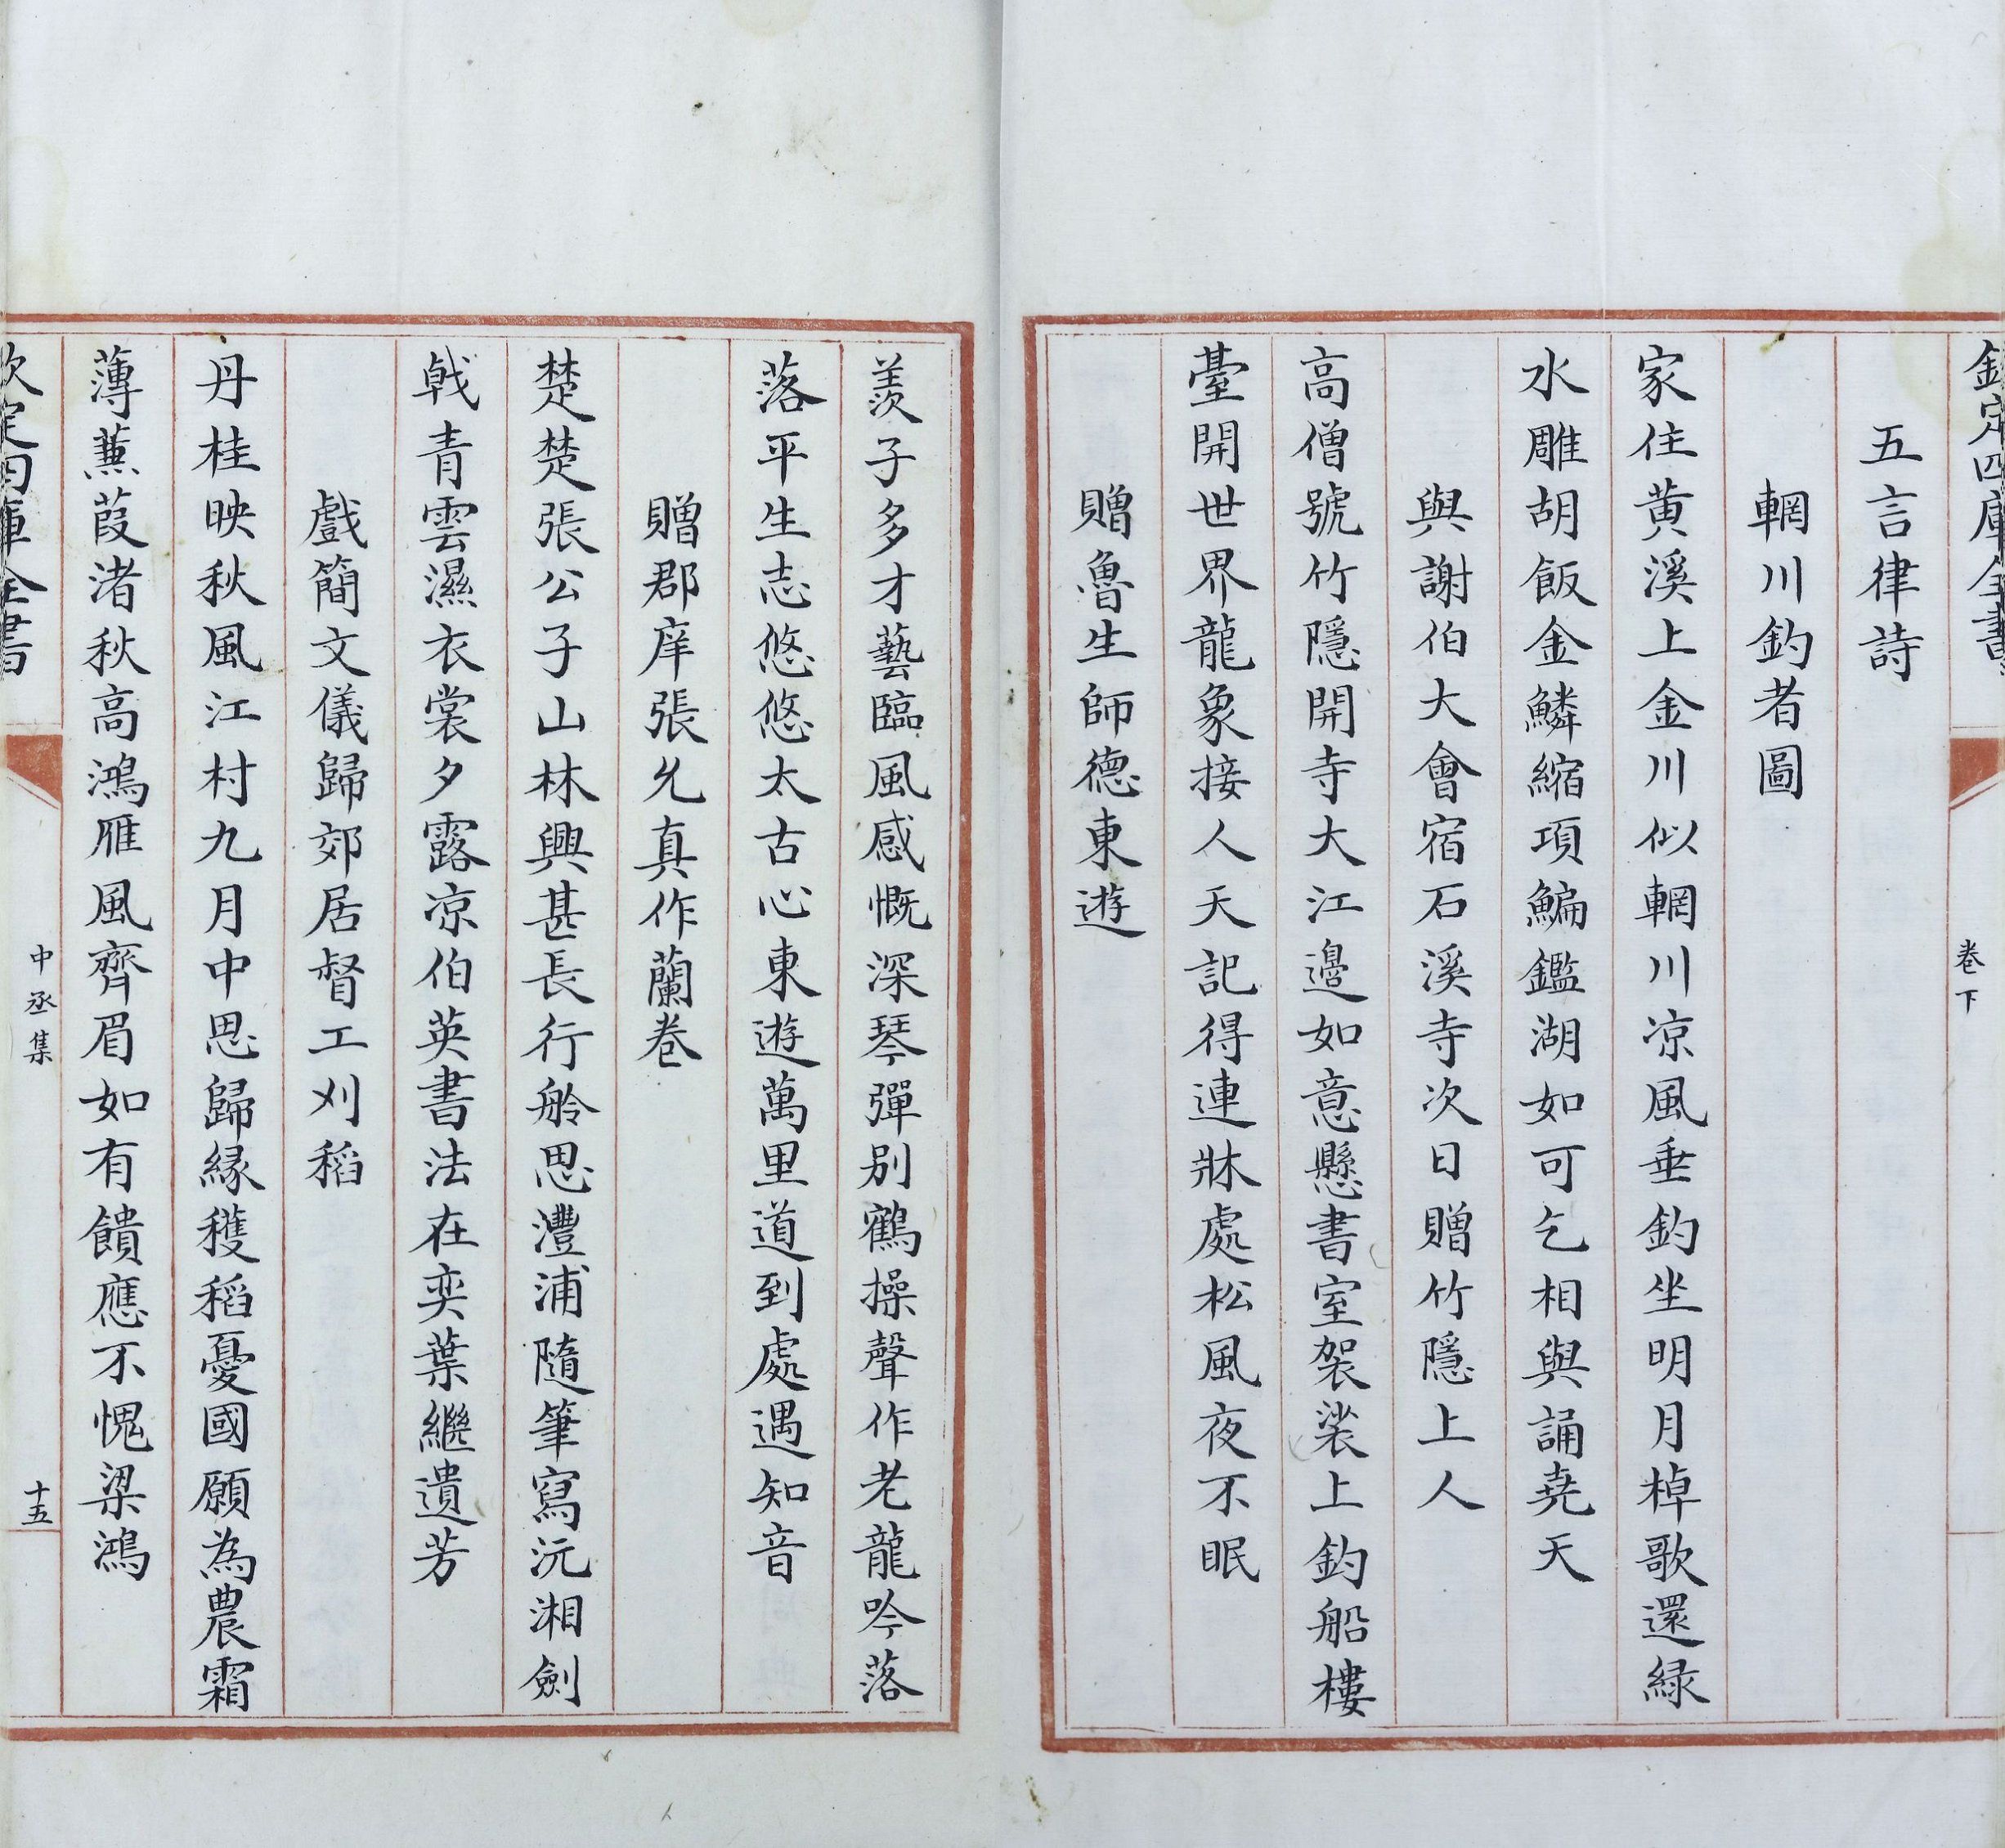 欽定四庫全書
卷下
五言律詩
輞川釣者圖
家住黃溪上金川似輞川凉風垂釣坐明月棹歌還緑
水雕胡飯金鱗縮項鯿鑑湖如可乞相與誦堯天
與謝伯大會宿石溪寺次日贈竹隱上人
高僧號竹隱開寺大江邊如意懸書室袈裟上釣船樓
臺開世界龍象接人天記得連牀處松風夜不眠
贈魯生師德東遊
羨子多才藝臨風感慨深琴彈别鶴操聲作老龍吟落
落平生志悠悠太古心東遊萬里道到處遇知音
贈郡庠張允真作蘭卷
楚楚張公子山林興甚長行舲思澧浦隨筆寫沅湘劍
戟青雲濕衣裳夕露凉伯英書法在奕葉繼遺芳
戲簡文儀歸郊居督工刈稻
丹桂映秋風江村九月中思歸縁穫稻憂國願為農霜
薄蒹葭渚秋高鴻雁風齊眉如有饋應不愧梁鴻
欽定四庫全書
中丞集
十五